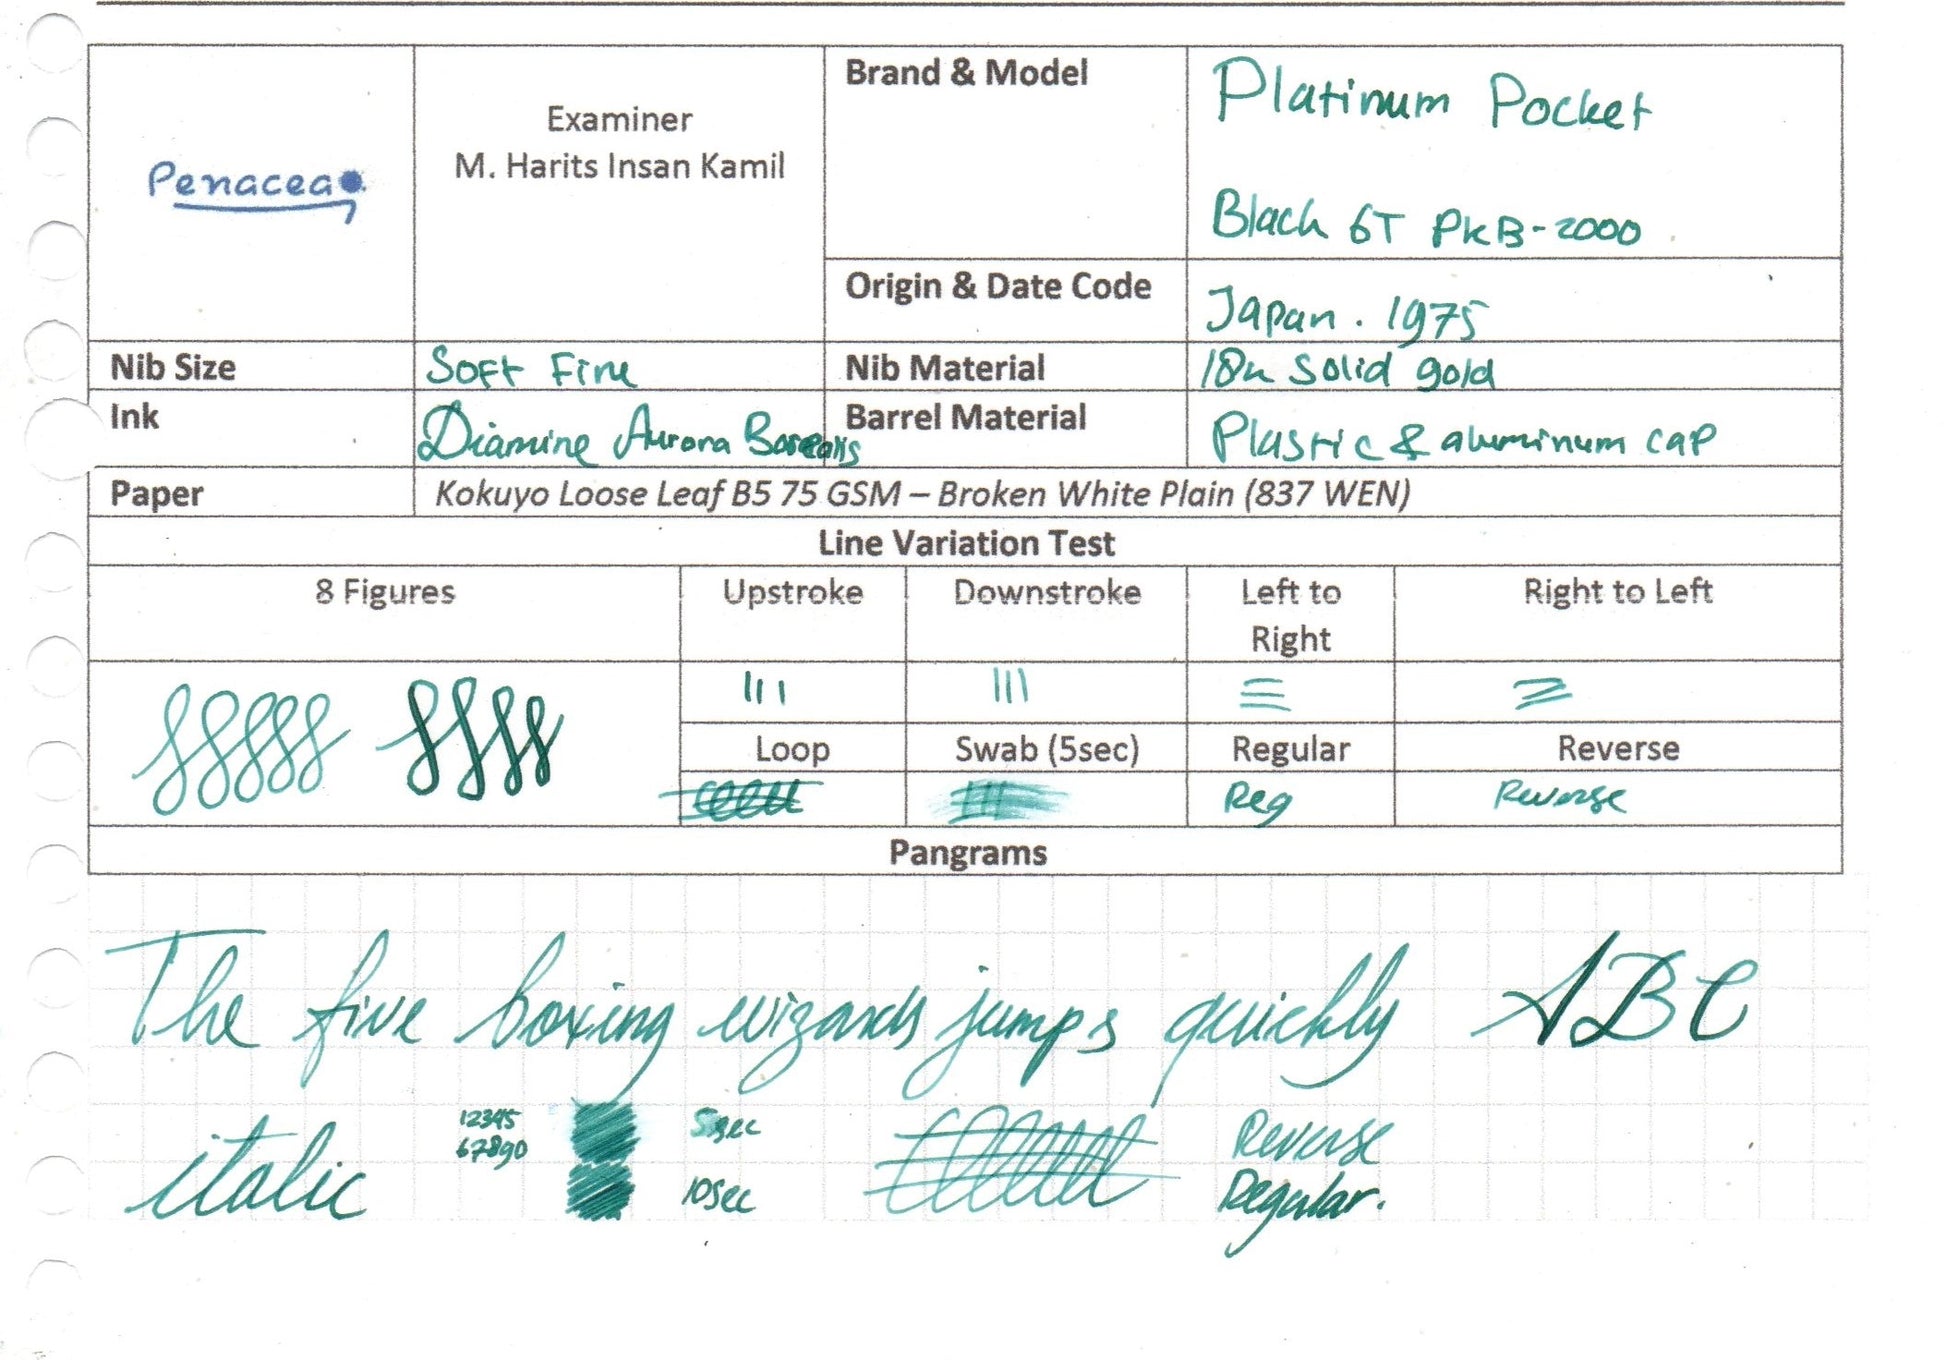 Penacea
Examiner
M. Harits Insan Kamil
Brand & Model
Platinum Pocket
Black 6T PKB-2000
Origin & Date Code
Japan. 1975
Nib Size
Soft Fine
Nib Material
18k solid gold
Ink
Diamine Aurora Borealis
Barrel Material
Plastic & aluminum cap
Paper
Kokuyo Loose Leaf B5 75 GSM – Broken White Plain (837 WEN)
Line Variation Test
8 Figures
Upstroke
Downstroke
Left to
Right
Right to Left
Loop
Swab (5sec)
Regular
Reverse
Reg
Reverse
Pangrams
The five boxing wizards jumps quickly ABC
italic
12345
67890
5sec
10sec
Reverse
Regular.